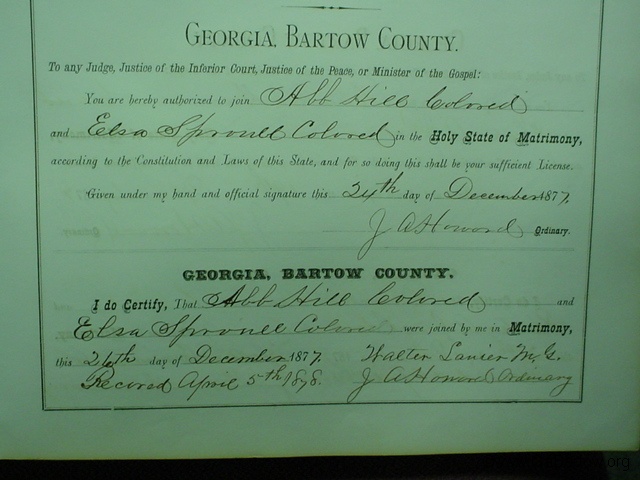 GEORGIA, BARTOW COUNTY.
To any Judge, Justice of the Inferior Court, Justice of the Peace, or Minister of the Gospel:
You are hereby authorized to join Abb Hill Colored
and Elsa Sproull Colored in the Holy State of Matrimony,
according to the Constitution and Laws of this State, and for so doing this shall be your sufficient License.
Given under my hand and official signature this 24th day of December 1877,
J A Howard Ordinary.
GEORGIA, BARTOW COUNTY.
I do Certify, That Abb Hill Colored and
Elsa Sproull Colored were joined by me in Matrimony,
this 26th day of December 1877. Walter Lanier M.G.
Recored April 5th 1878. J A Howard Ordinary
.org